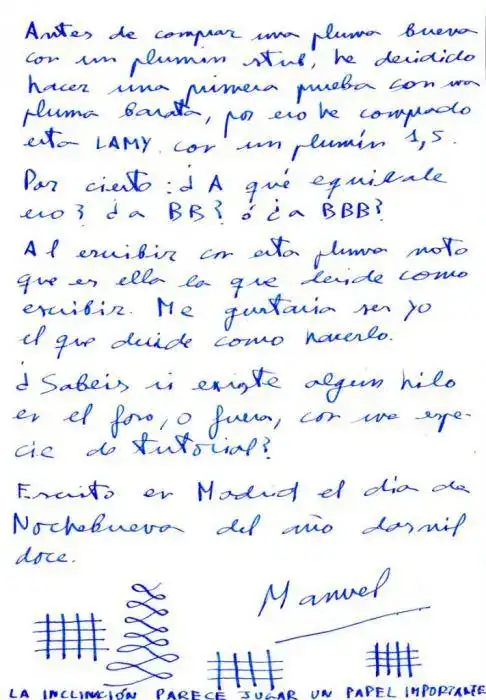 Antes de comprar una pluma buena
con un plumín stub, he decidido
hacer una primera prueba con una
pluma barata, por eso he comprado
esta LAMY con un plumín 1,5.
Por cierto: ¿A qué equivale
eso? ¿a BB? ó ¿a BBB?
Al escribir con esta pluma noto
que es ella la que decide como
escribir. Me gustaria ser yo
el que decide como hacerlo.
¿Sabeis si existe algun hilo
en el foro, o fuera, con una espe-
cie de tutorial?
Escrito en Madrid el dia de
Nochebuena del año dosmil
doce.
Manuel
LA INCLINCIÓN PARECE JUGAR UN PAPEL IMPORTANTE